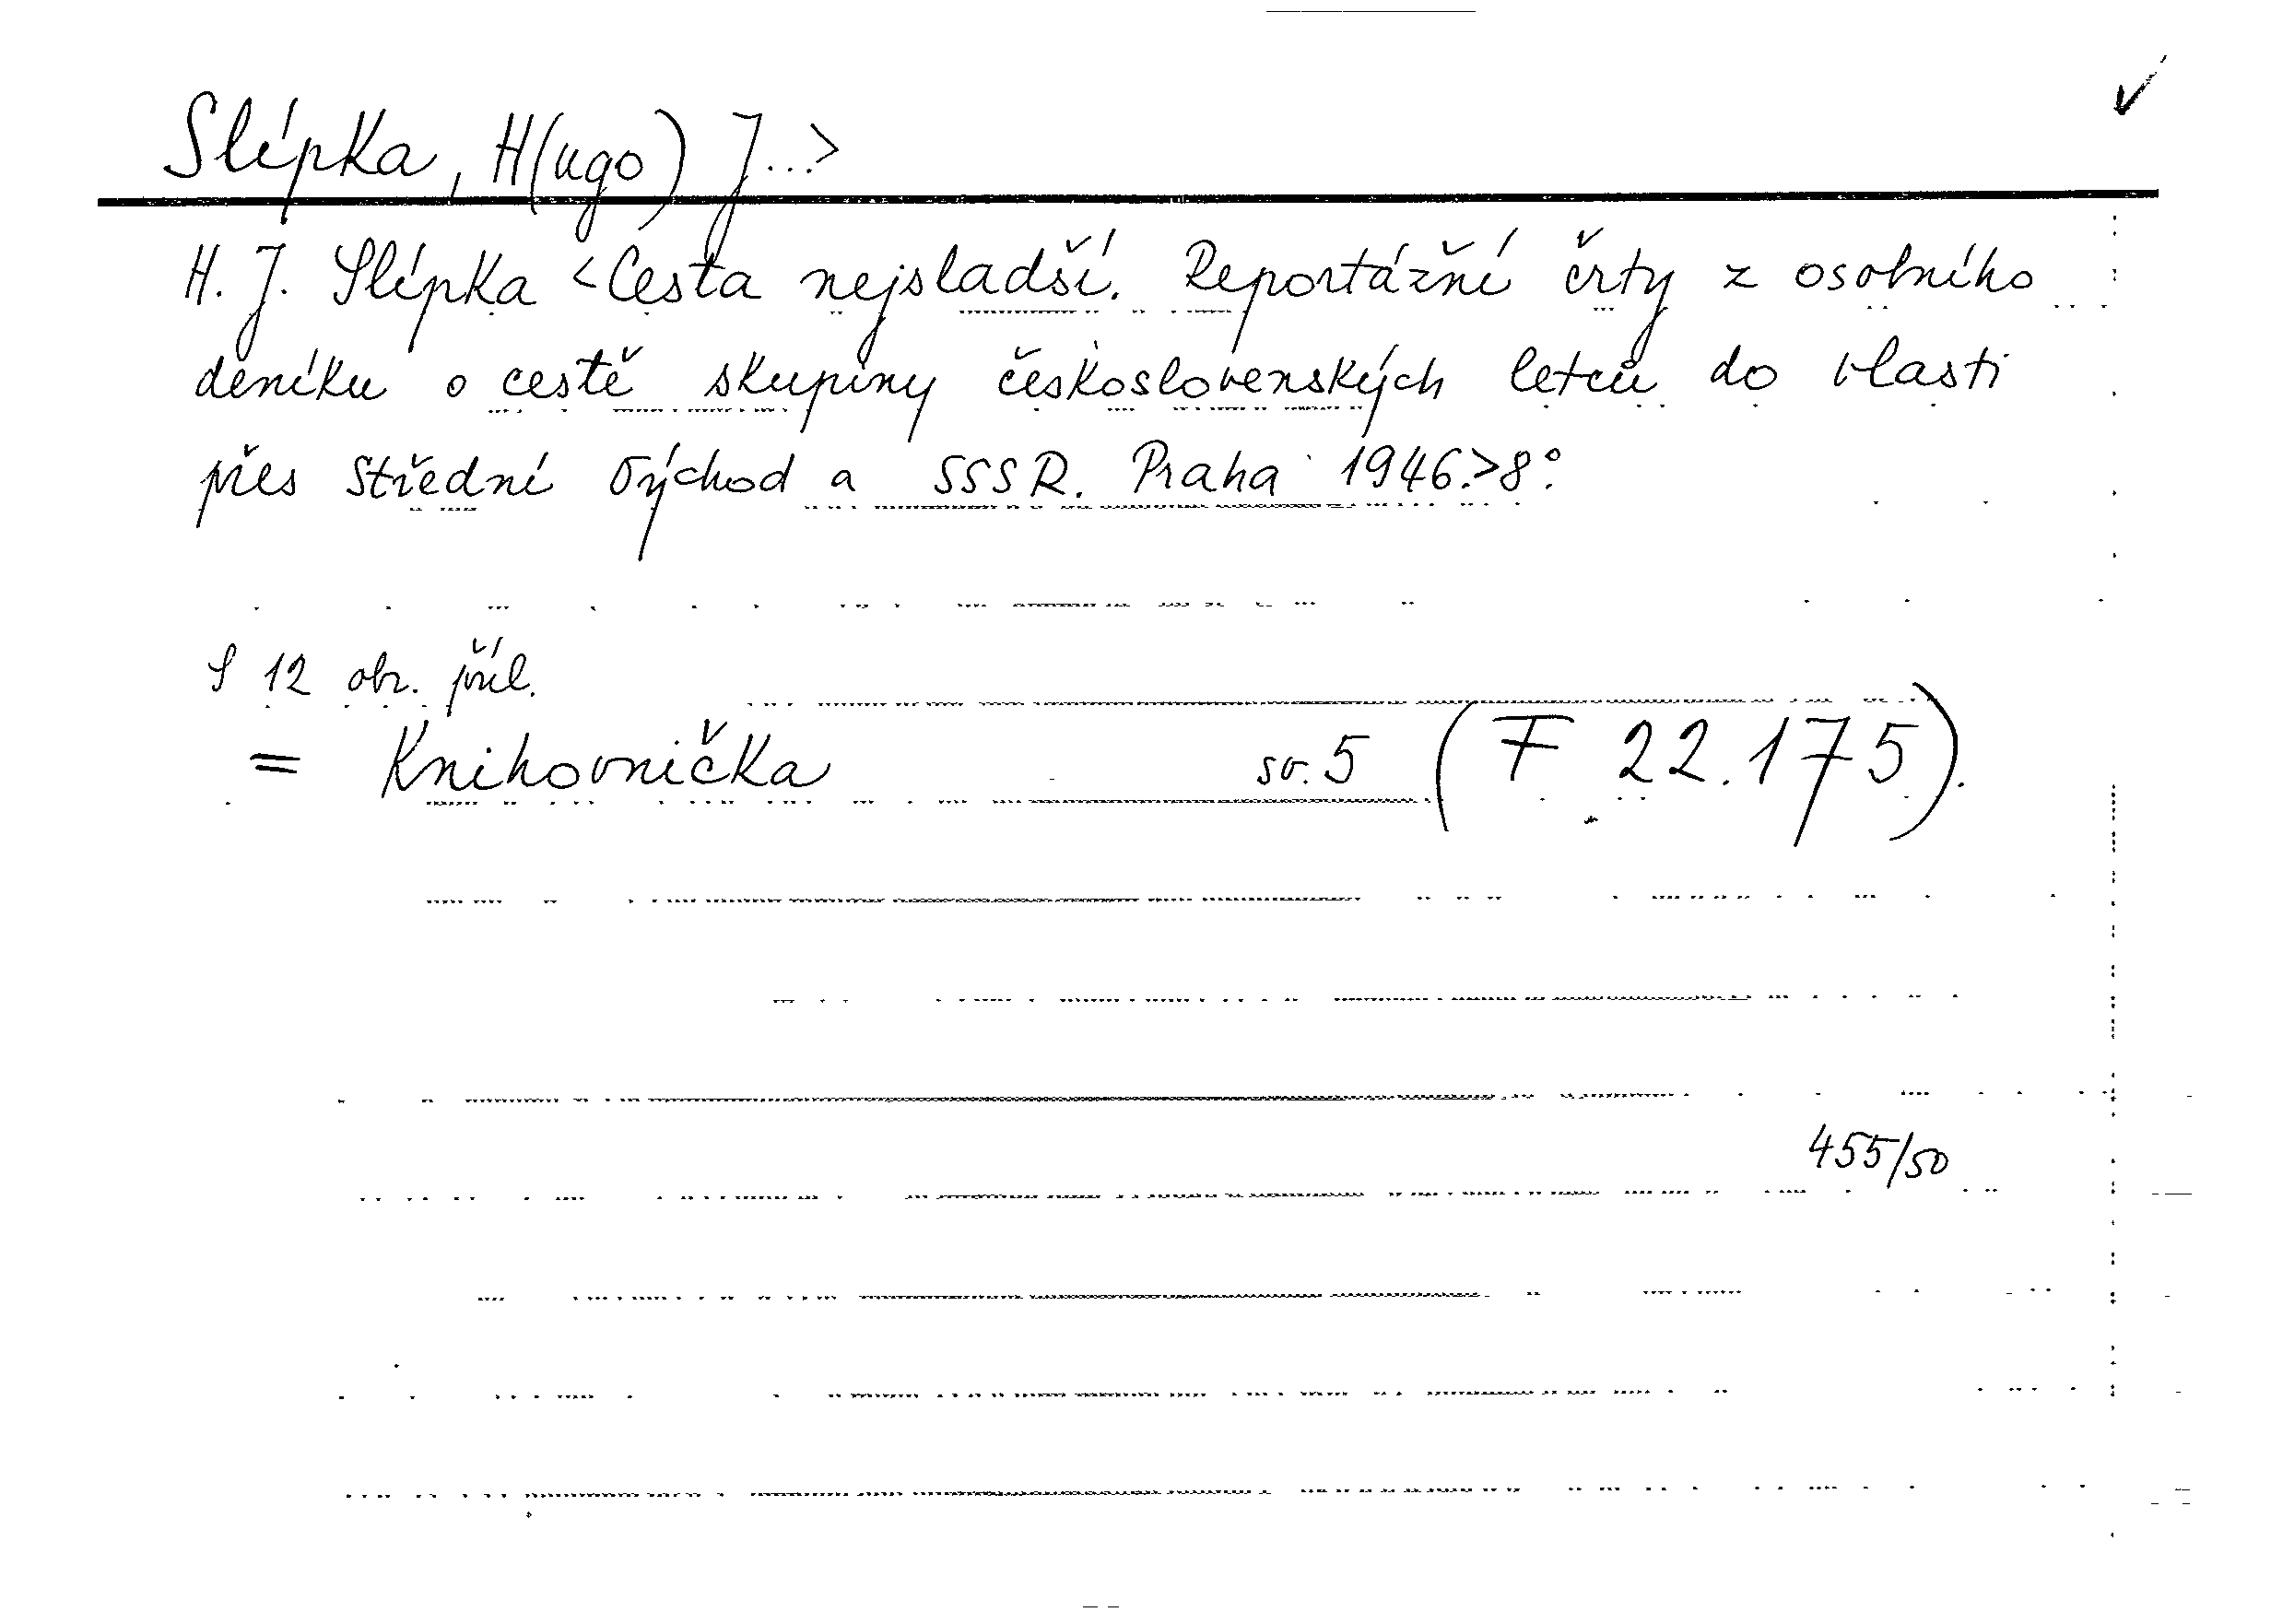 Slípka, H(ugo) J...>
H. J. Slípka <Cesta nejsladší. Reportážní črty z osobního
deníku o cestě skupiny československých letců do vlasti
přes Střední Východ a SSSR. Praha 1946.>8°.
S 12 obr. příl.
= Knihovnička sv. 5 (F 22.175).
455/50